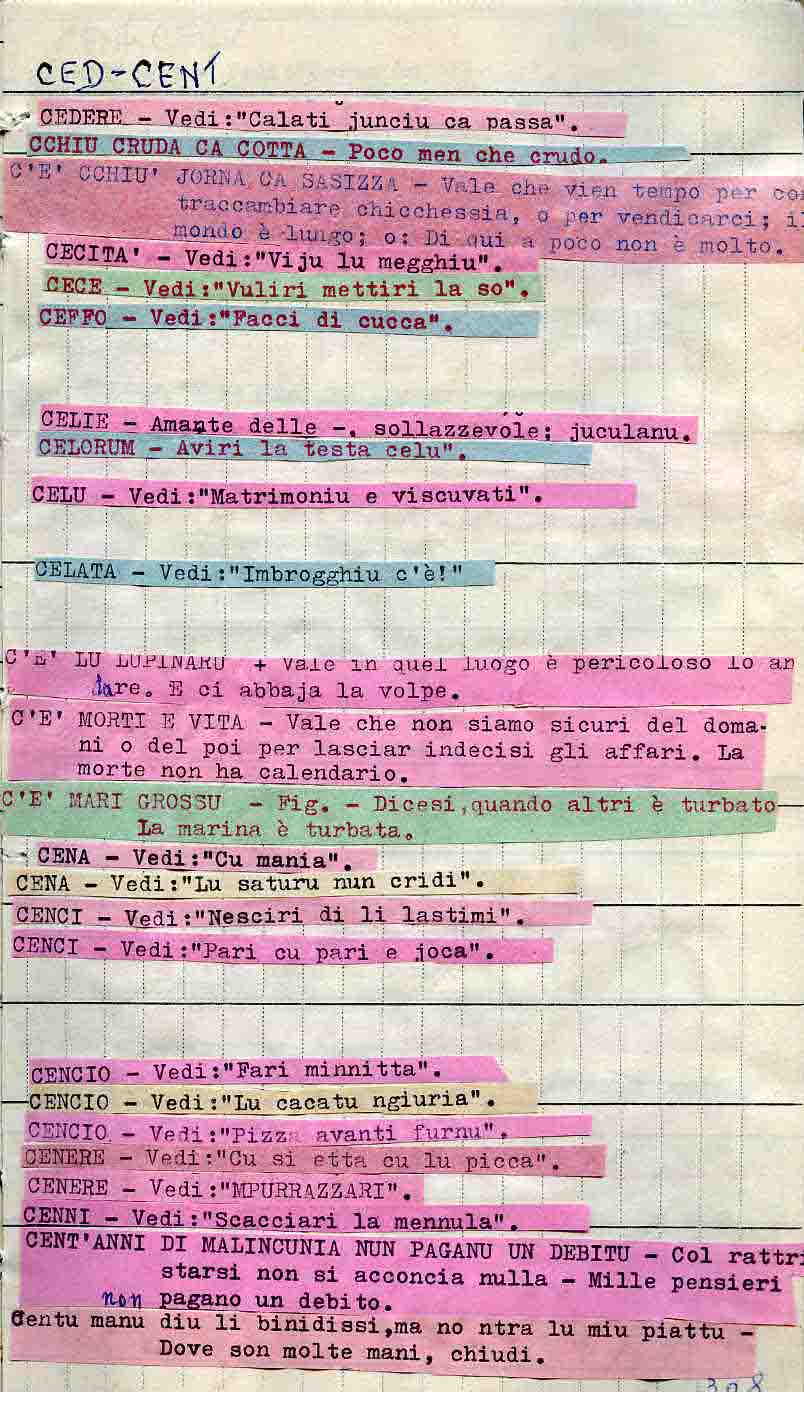 CED-CENT
CEDERE - Vedi:"Calati junciu ca passa".
CCHIU CRUDA CA COTTA - Poco men che crudo.
C'E' CCHIU' JORNA CA SASIZZA - Vale che vien tempo per con
traccambiare chicchessia, o per vendicarci; il
mondo è lungo; o: Di qui a poco non è molto.
CECITA' - Vedi:"Viju lu megghiu".
CECE - Vedi:"Vuliri mettiri la so".
CEFFO - Vedi:"Facci di cucca".
CELIE - Amante delle -, sollazzevole; juculanu.
CELORUM - Aviri la testa celu".
CELU - Vedi:"Matrimoniu e viscuvati".
CELATA - Vedi:"Imbrogghiu c'è!"
C'E' LU LUPINARU + Vale in quel luogo è pericoloso lo an
dare. E ci abbaja la volpe.
C'E' MORTI E VITA - Vale che non siamo sicuri del doma-
ni o del poi per lasciar indecisi gli affari. La
morte non ha calendario.
C'E' MARI GROSSU - Fig. - Dicesi,quando altri è turbato
La marina è turbata.
CENA - Vedi:"Cu mania".
CENA - Vedi:"Lu saturu nun cridi".
CENCI - Vedi:"Nesciri di li lastimi".
CENCI - Vedi:"Pari cu pari e joca".
CENCIO - Vedi:"Fari minnitta".
CENCIO - Vedi:"Lu cacatu ngiuria".
CENCIO - Vedi:"Pizza avanti furnu".
CENERE - Vedi:"Cu si etta cu lu picca".
CENERE - Vedi:"MPURRAZZARI".
CENNI - Vedi:"Scacciari la mennula".
CENT'ANNI DI MALINCUNIA NUN PAGANU UN DEBITU - Col rattri
starsi non si acconcia nulla - Mille pensieri
non pagano un debito.
Centu manu diu li binidissi,ma no ntra lu miu piattu -
Dove son molte mani, chiudi.